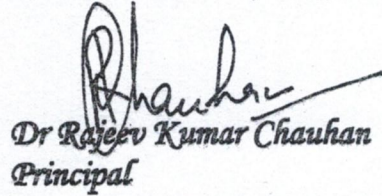 RKChauhan
Dr Rajeev Kumar Chauhan
Principal